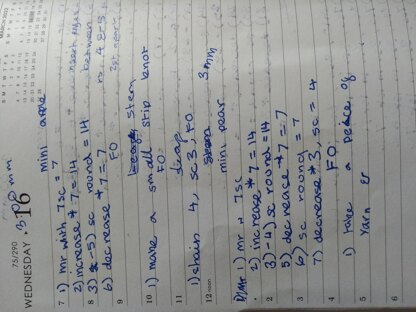 MARCH 2022
75/290
WEDNESDAY • 16
3.00 mm
mini
7 1) mr with 7sc = 7
2) increase * 7 = 14
8 3) -5) sc round = 14
6) decrease * 7 = 7
9 FO
insert eyes
between
r3 4 & 5
2st apart
stem
10 1) make a small strip knot
FO
11
1) chain 4, sc3, FO
12 noon
3mm
mini pear
1) mr w 7sc
2) increase * 7 = 14
2 3) -4) sc round = 14
5) decreace * 7 = 7
3 6) sc round = 7
7) decrease * 3, sc = 4
4 FO
1) take a peice of
5 yarn
6